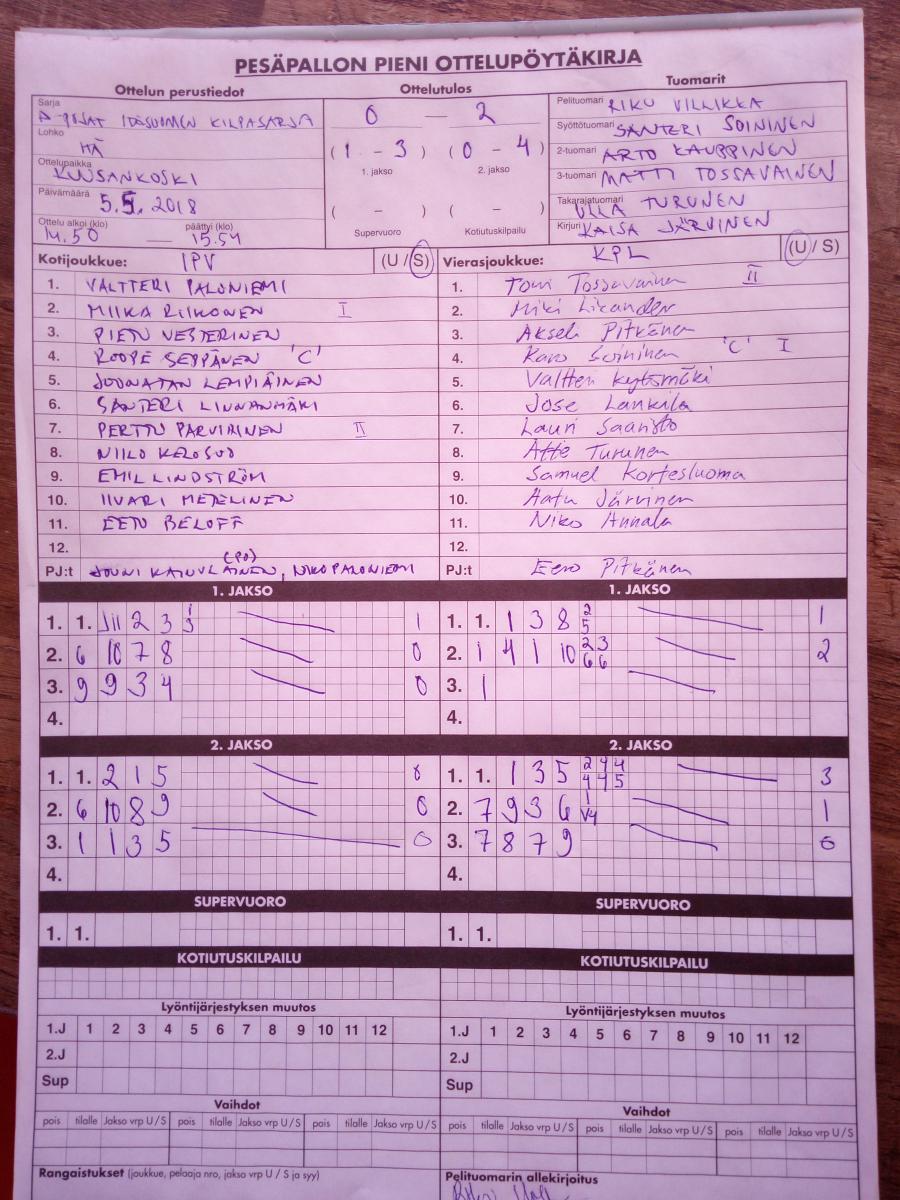 PESÄPALLON PIENI OTTELUPÖYTÄKIRJA
Ottelun perustiedot Ottelutulos Tuomarit
Sarja
D-POJAT ITÄSUOMEN KILPASARJA
Lohko
Ottelupaikka
KUUSANKOSKI
Päivämäärä 5.5. 2018
Ottelu alkoi (klo) päättyi (klo)
14.50 — 15.54
0 — 2
(1 - 3) (0 - 4)
1. jakso 2. jakso
( - ) ( - )
Supervuoro Kotiutuskilpailu
Pelituomari RIKU VILLIKKA
Syöttötuomari SANTERI SOININEN
2-tuomari ARTO KAUPPINEN
3-tuomari MATTI TOSSAVAINEN
Takarajatuomari ULLA TURUNEN
Kirjuri KAISA JÄRVINEN
Kotijoukkue: IPV (U / S)
1. VALTTERI PALONIEMI
2. MIIKA RIIKONEN I
3. PIETU VESTERINEN
4. ROOPE SEPPÄNEN 'C'
5. JOONATAN LEMPIÄINEN
6. SANTERI LINNANMÄKI
7. PERTTU PARVIAINEN II
8. NIILO KELOSUO
9. EMIL LINDSTRÖM
10. IIVARI METELINEN
11. EETU BELOFF
12.
(PO)
PJ:t JOUNI KAINULAINEN, NIKO PALONIEMI
Vierasjoukkue: KPL (U / S)
1. Tomi Tossavainen II
2. Miki Licander
3. Akseli Pitkänen
4. Soininen 'C' I
5. Valtteri Kytömäki
6. Jose Lankila
7. Lauri Saaristo
8. Atte Turunen
9. Samuel Kortesluoma
10. Aatu Järvinen
11. Niko Annala
12.
PJ:t Eero Pitkänen
1. JAKSO 1. JAKSO
1. 1. 2 3 1 3 1
2. 6 10 7 8 0
3. 9 9 3 4 0
4.
1. 1. 1 3 8 2 5 1
2. 1 4 1 10 2 3 6 6 2
3. 1
4.
2. JAKSO 2. JAKSO
1. 1. 2 1 5 0
2. 6 10 8 9 0
3. 1 1 3 5 0
4.
1. 1. 1 3 5 2 4 4 4 4 5 3
2. 7 9 3 6 1 V4 1
3. 7 8 7 9 0
4.
SUPERVUORO SUPERVUORO
1. 1. 1. 1.
KOTIUTUSKILPAILU KOTIUTUSKILPAILU
Lyöntijärjestyksen muutos Lyöntijärjestyksen muutos
1.J 1 2 3 4 5 6 7 8 9 10 11 12 1.J 1 2 3 4 5 6 7 8 9 10 11 12
2.J 2.J
Sup Sup
Vaihdot Vaihdot
pois tilalle Jakso vrp U / S pois tilalle Jakso vrp U / S pois tilalle Jakso vrp U / S pois tilalle Jakso vrp U / S pois tilalle Jakso vrp U / S pois tilalle Jakso vrp U / S
Rangaistukset (joukkue, pelaaja nro, jakso vrp U / S ja syy) Pelituomarin allekirjoitus